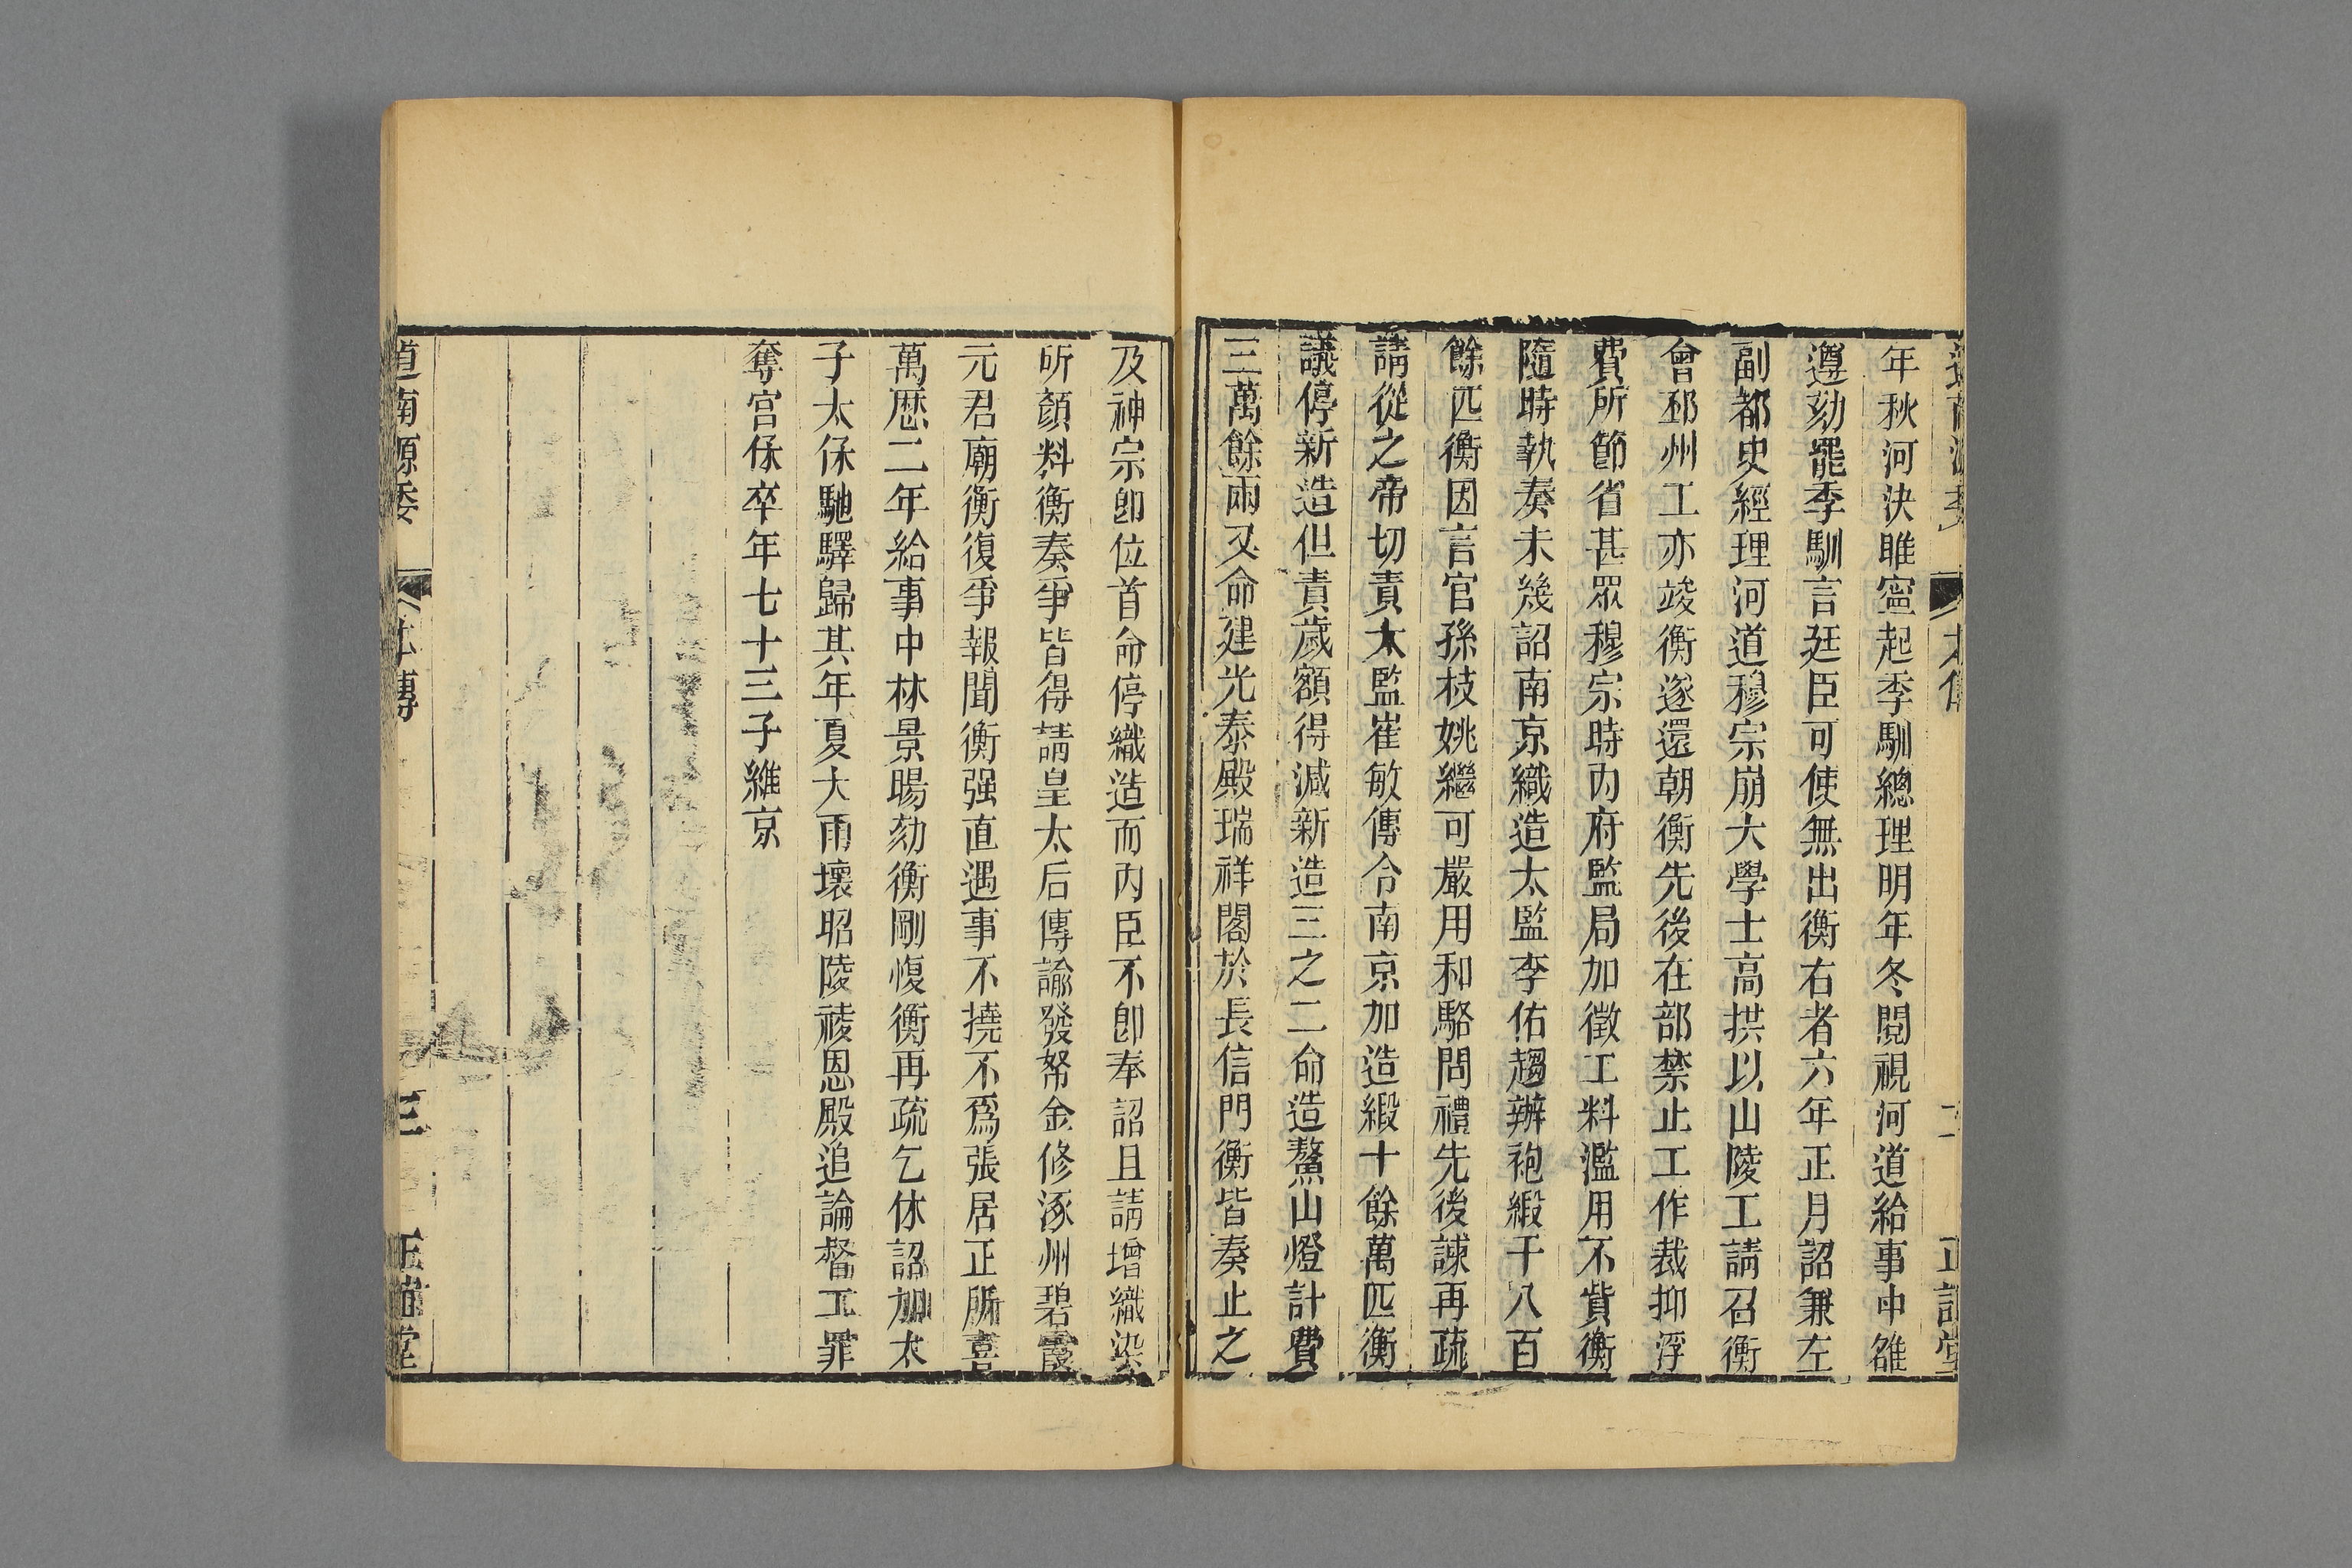 年秋河決睢寧起季馴總理明年冬閱視河道給事中雒
遵劾罷季馴言廷臣可使無出衡右者六年正月詔兼左
副都史經理河道穆宗崩大學士高拱以山陵工請召衡
會邳州工亦竣衡遂還朝衡先後在部禁止工作裁抑浮
費所節省甚眾穆宗時內府監局加徵工料濫用不貲衡
隨時執奏未幾詔南京織造太監李佑趨辦袍緞千八百
餘匹衡因言官孫枝姚繼可嚴用和駱問禮先後諫再疏
請從之帝切責太監崔敏傳令南京加造緞十餘萬匹衡
議停新造但責歲額得減新造三之二命造鰲山燈計費
三萬餘兩又命建光泰殿瑞祥閣於長信門衡皆奏止之
及神宗卽位首命停織造而內臣不卽奉詔且請增織染
所顏料衡奏爭皆得請皇太后傳諭發帑金修涿州碧霞
元君廟衡復爭報聞衡强直遇事不撓不爲張居正所喜
萬歷二年給事中林景暘劾衡剛愎衡再疏乞休詔加太
子太保馳驛歸其年夏大雨壞昭陵祾恩殿追論督工罪
奪宮保卒年七十三子維京
道南源委 本傳 三 正誼堂